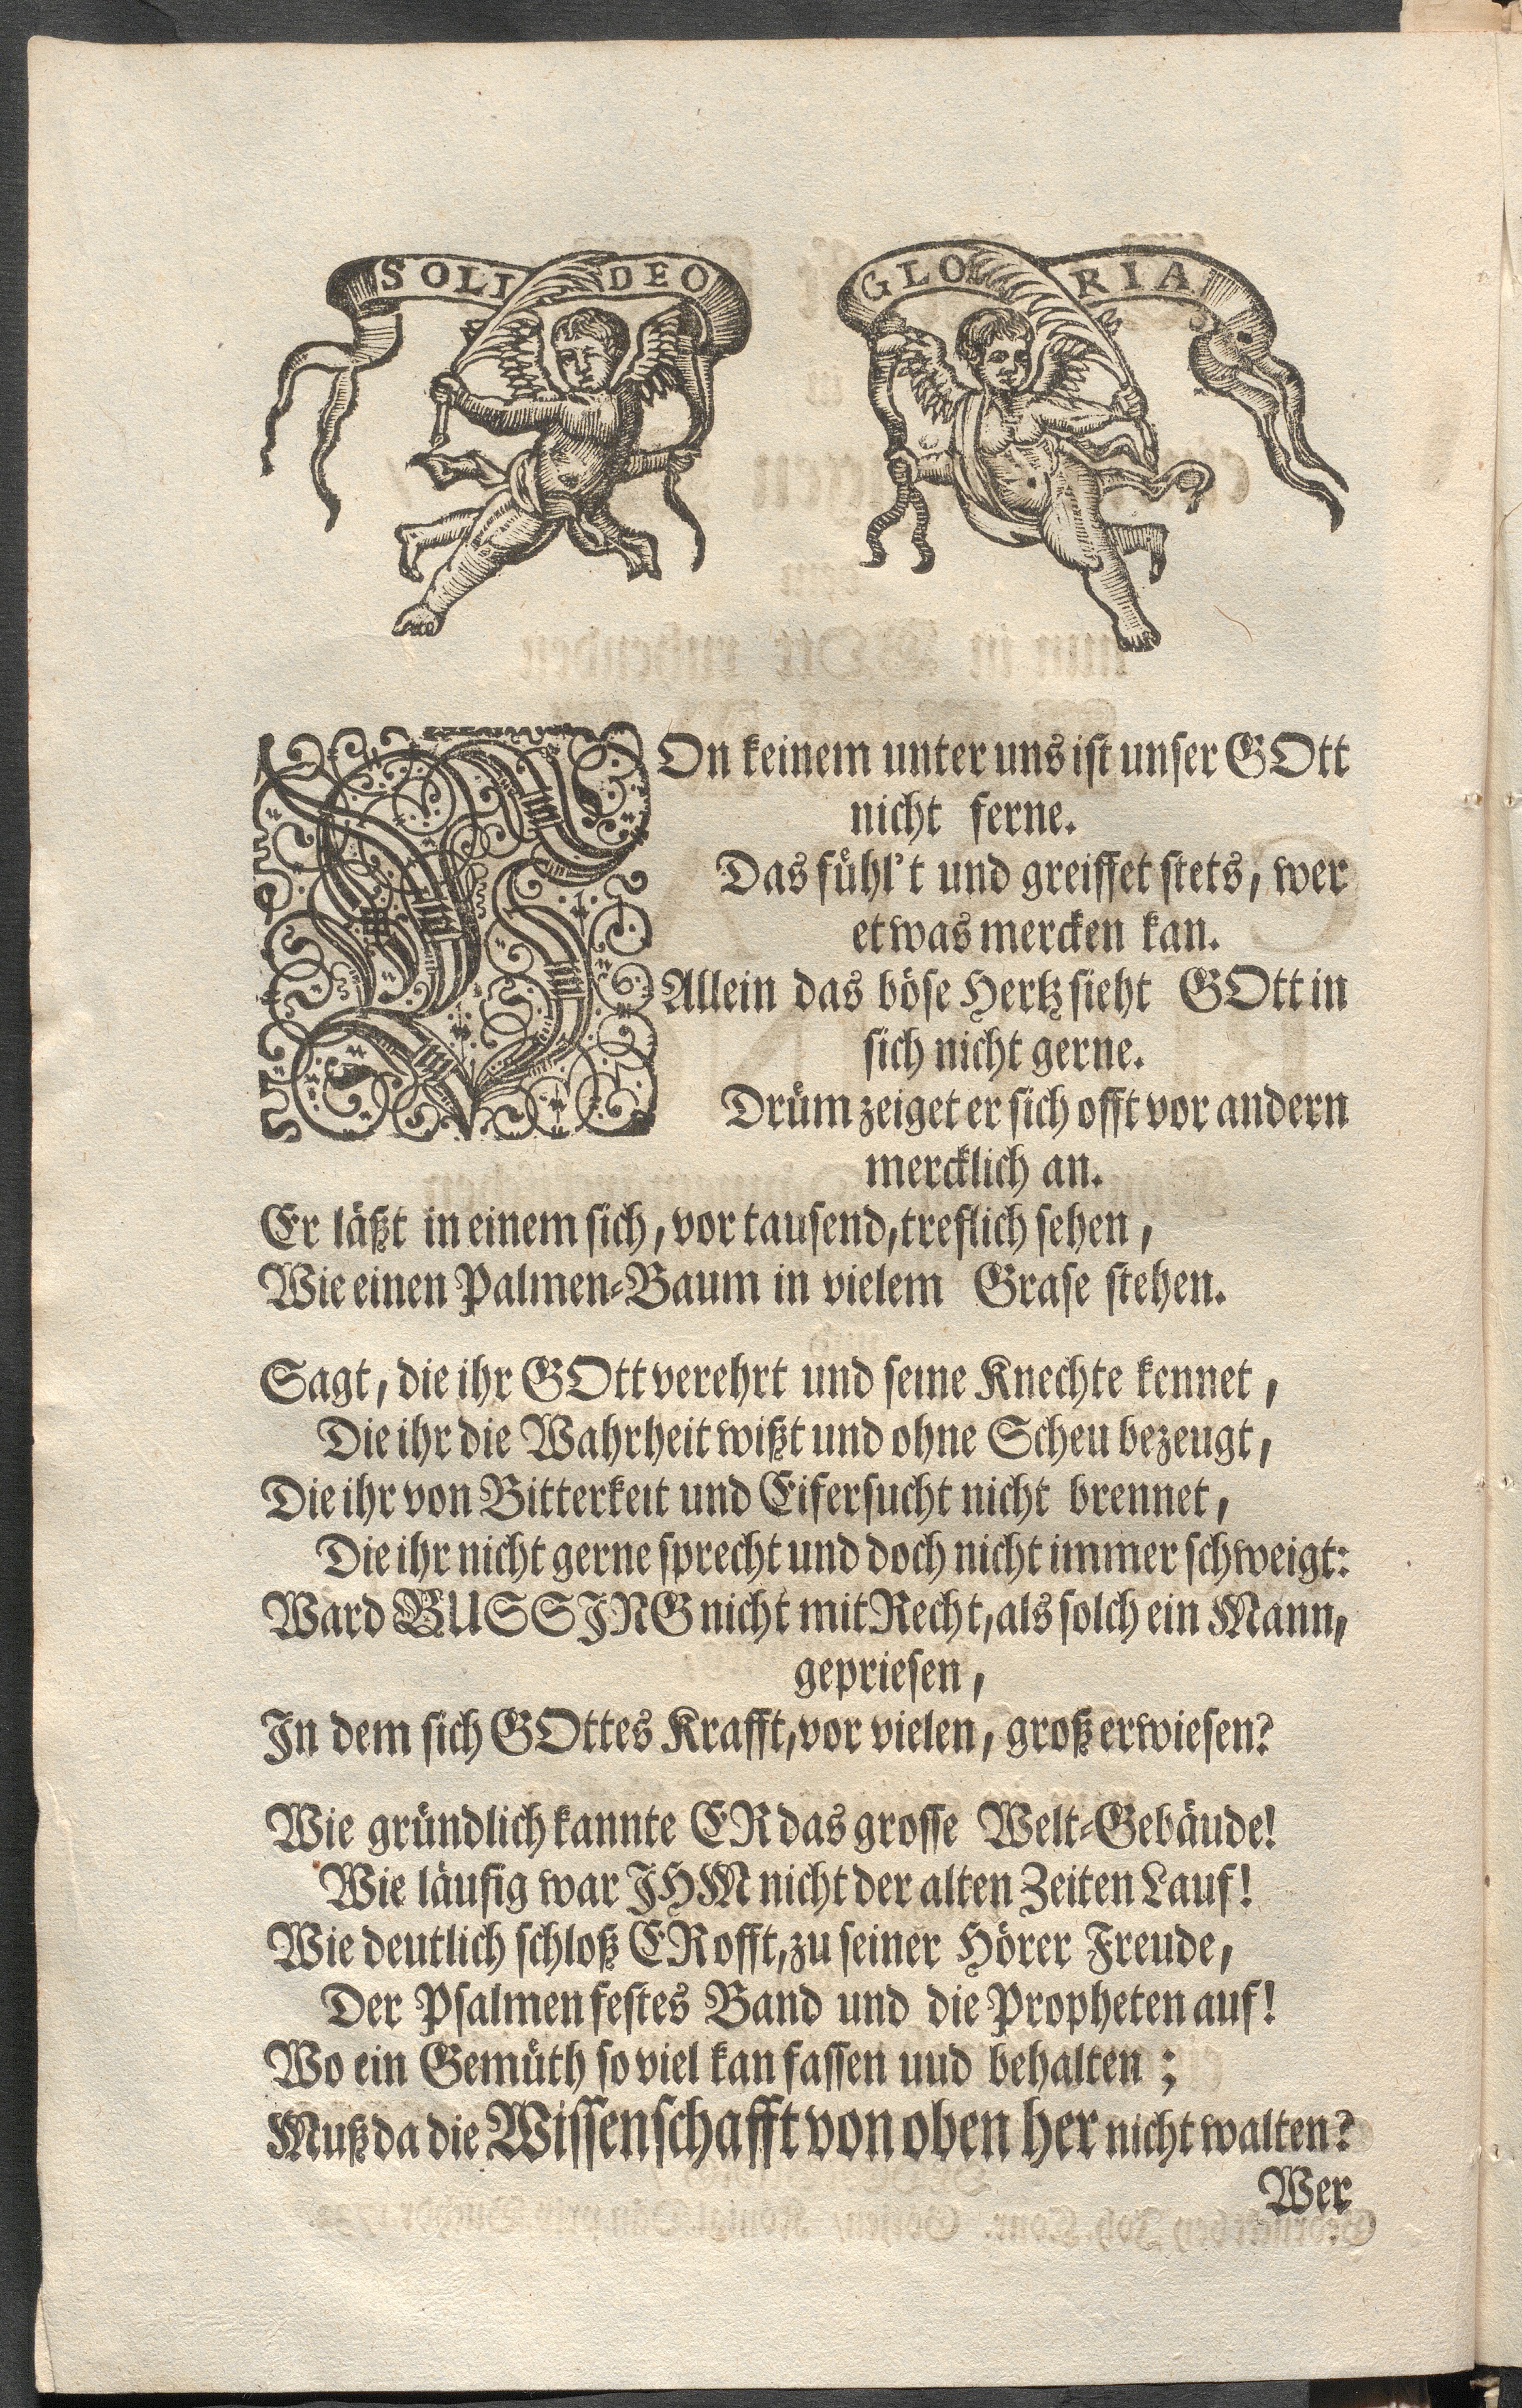 SOLI DEO GLORIA
VOn keinem unter uns ist unser GOtt
nicht ferne.
Das fühl't und greiffet stets, wer
etwas mercken kan.
Allein das böse Hertz sieht GOtt in
sich nicht gerne.
Drüm zeiget er sich offt vor andern
mercklich an.
Er läßt in einem sich, vor tausend, treflich sehen,
Wie einen Palmen-Baum in vielem Grase stehen.
Sagt, die ihr GOtt verehrt und seine Knechte kennet,
Die ihr die Wahrheit wißt und ohne Scheu bezeugt,
Die ihr von Bitterkeit und Eifersucht nicht brennet,
Die ihr nicht gerne sprecht und doch nicht immer schweigt:
Ward BUSSJNG nicht mit Recht, als solch ein Mann,
gepriesen,
Jn dem sich GOttes Krafft, vor vielen, groß erwiesen?
Wie gründlich kannte ER das grosse Welt-Gebäude!
Wie läufig war JHM nicht der alten Zeiten Lauf!
Wie deutlich schloß ER offt, zu seiner Hörer Freude,
Der Psalmen festes Band und die Propheten auf!
Wo ein Gemüth so viel kan fassen uud behalten;
Muß da die Wissenschafft von oben her nicht walten?
Wer